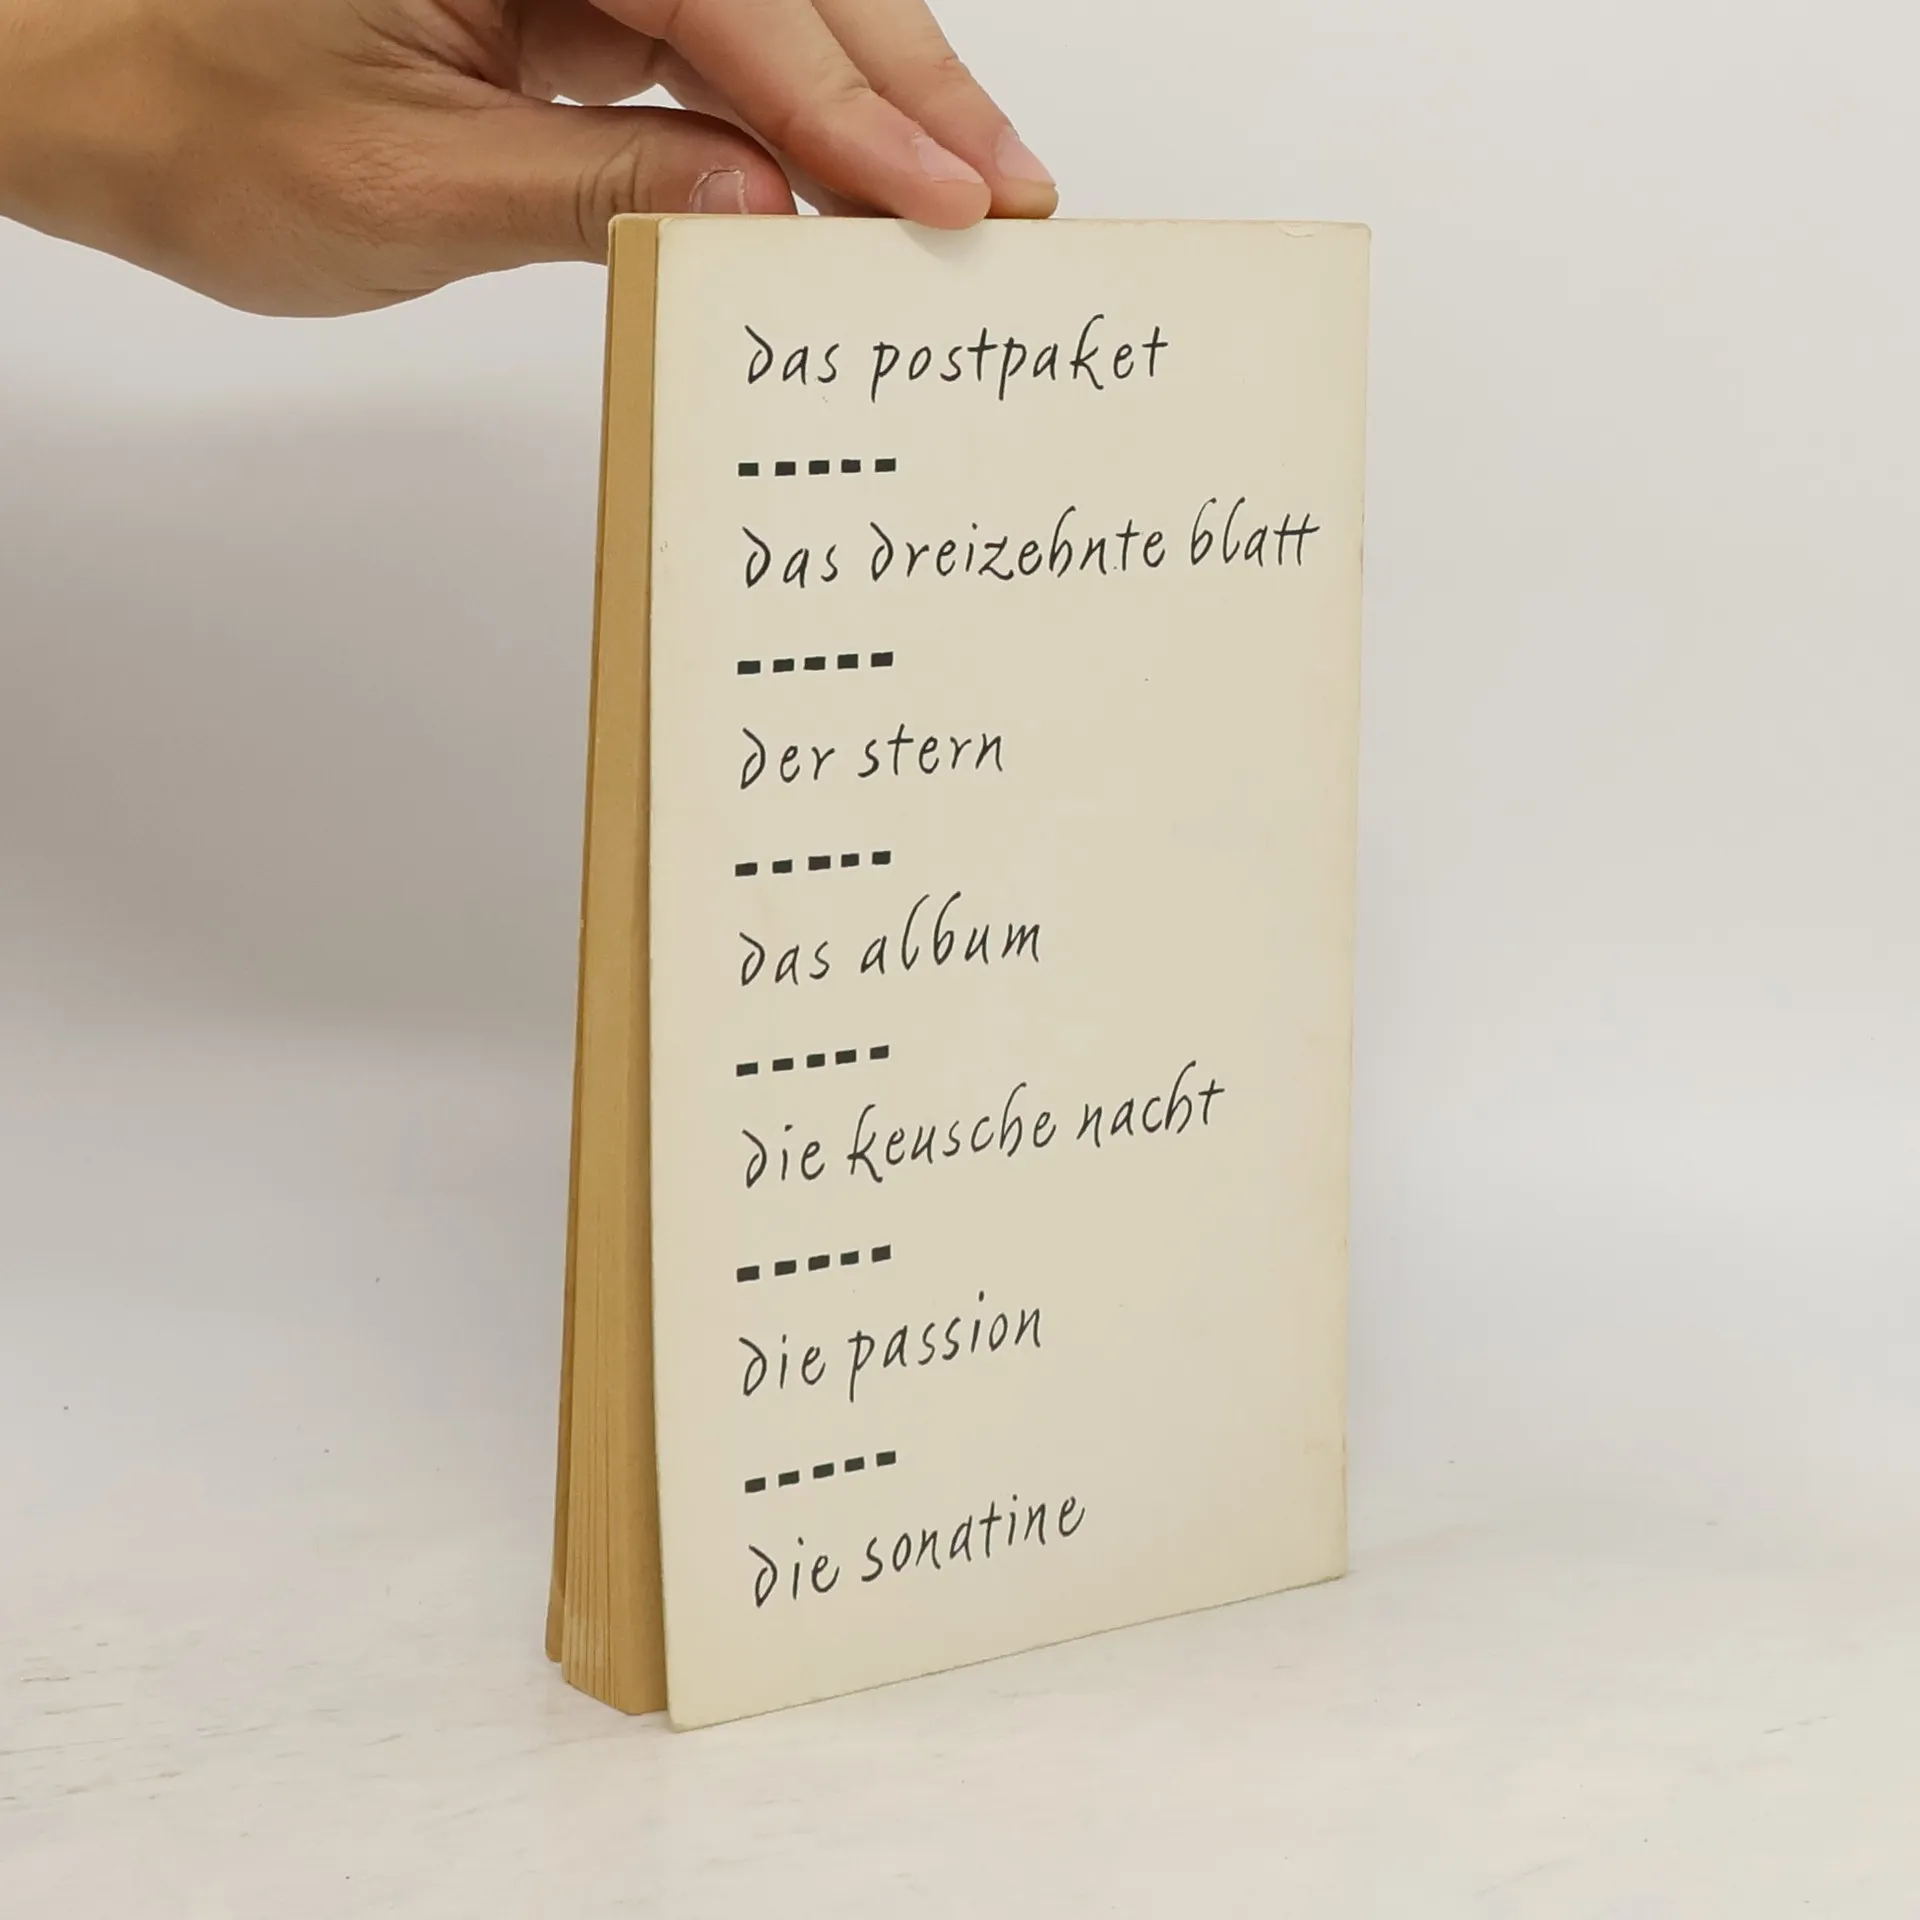 das postpaket
-----
das dreizehnte blatt
-----
der stern
-----
das album
-----
die keusche nacht
-----
die passion
-----
die sonatine